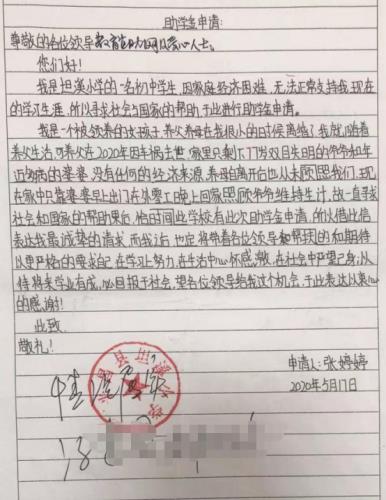 助学金申请
尊敬的各位领导
您们好!
我是坦溪小学的一名初中学生,因家庭经济困难,无法正常支持我现在
的学习生涯,所以寻找社会与国家的帮助,于此进行助学金申请。
我是一个被领养的女孩子,养父养母在我很小的时候离婚了,我就随着
养父生活,可养父在2020年因车祸去世,家里只剩下77岁双目失明的爷爷和年
近的婆婆,没有任何的经济来源,养母自离开后也从未照顾我们,现
在家中只靠婆婆早上出门在外零工晚上回家照顾爷爷维持生计,故一直寻找
社会和国家的帮助,时间些学校有此次助学金申请,所以借此信
表达我最诚挚的请求,而我,也定将带着各位领导和期待
以更严格的要求,在学习上努力,在生活中心怀感激,在社会中严望己身,以
待将来学业有成,必目报于社会,望各位领导给我这个机会,于此表达以衷心
的感谢!
此致
敬礼!
申请人:张婷婷
2020年5月17日